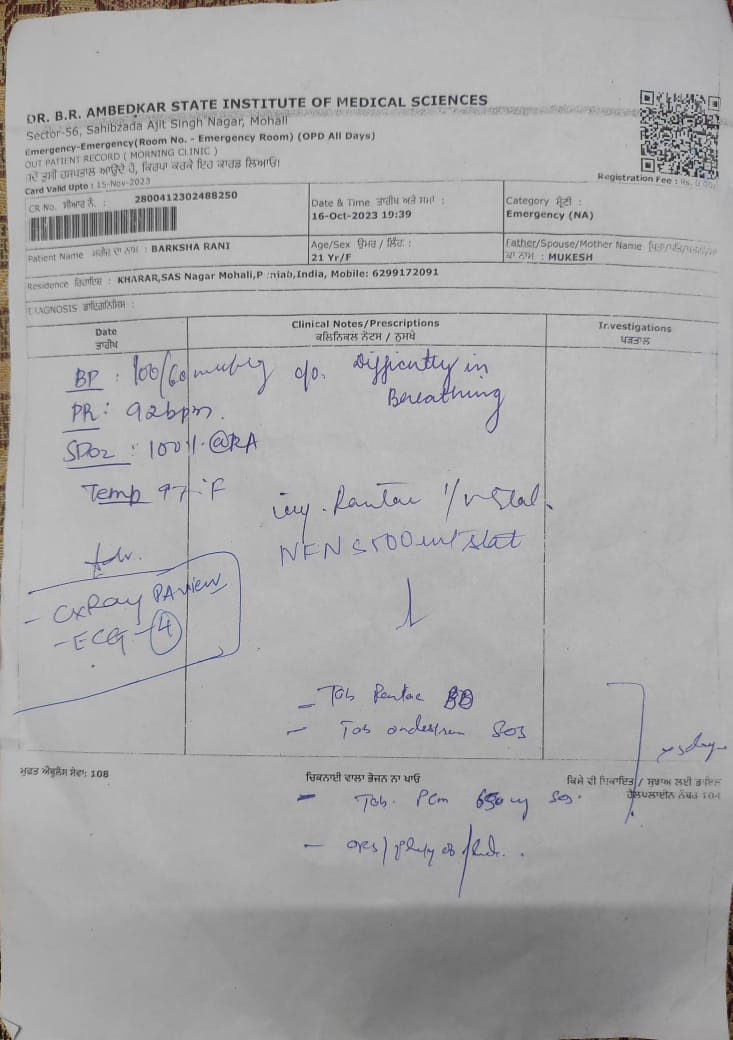 DR. B.R. AMBEDKAR STATE INSTITUTE OF MEDICAL SCIENCES
Sector-56, Sahibzada Ajit Singh Nagar, Mohali
Emergency-Emergency(Room No. - Emergency Room) (OPD All Days)
OUT PATIENT RECORD ( MORNING CLINIC )
ਤੁਸੀਂ ਹਸਪਤਾਲ ਆਉਂਦੇ ਹੋ, ਕਿਰਪਾ ਕਰਕੇ ਇਹ ਕਾਰਡ ਲਿਆਓ!
Card Valid Upto : 15-Nov-2023
Registration Fee : Rs. 0.00/
CR No. ਸੀਆਰ ਨੰ. : 2800412302488250
Date & Time ਤਾਰੀਖ ਅਤੇ ਸਮਾਂ :
16-Oct-2023 19:39
Category ਸ਼੍ਰੇਣੀ :
Emergency (NA)
Patient Name ਮਰੀਜ਼ ਦਾ ਨਾਮ : BARKSHA RANI
Age/Sex ਉਮਰ / ਲਿੰਗ :
21 Yr/F
Father/Spouse/Mother Name
ਕਾ ਨਾਮ : MUKESH
Residence ਰਿਹਾਇਸ਼ : KHARAR,SAS Nagar Mohali,Punjab,India, Mobile: 6299172091
DIAGNOSIS ਡਾਇਗਨੋਸਿਸ :
Date
ਤਾਰੀਖ
Clinical Notes/Prescriptions
ਕਲਿਨਿਕਲ ਨੋਟਸ / ਨੁਸਖੇ
Investigations
ਪੜਤਾਲ
BP : 100/60 mmhg c/o. Difficulty in
Breathing
PR : 92bpm.
SPO2 : 100%.@RA
Temp 97°F
inj. Rantac 1/v stat.
NFNS 500ml stat
Adv.
- CxRay PA view
- ECG - 4
- Tab Rantac BD
- Tab ondestran SOS
ਮੁਫਤ ਐਂਬੂਲੈਂਸ ਸੇਵਾ: 108
ਚਿਕਨਾਈ ਵਾਲਾ ਭੋਜਨ ਨਾ ਖਾਓ
ਕਿਸੇ ਦੀ ਸ਼ਿਕਾਇਤ / ਸੁਝਾਅ ਲਈ ਡਾਇਲ
ਹੈਲਪਲਾਈਨ ਨੰਬਰ 104
- Tab. PCm 650mg SOS.
- ORS/ plenty of